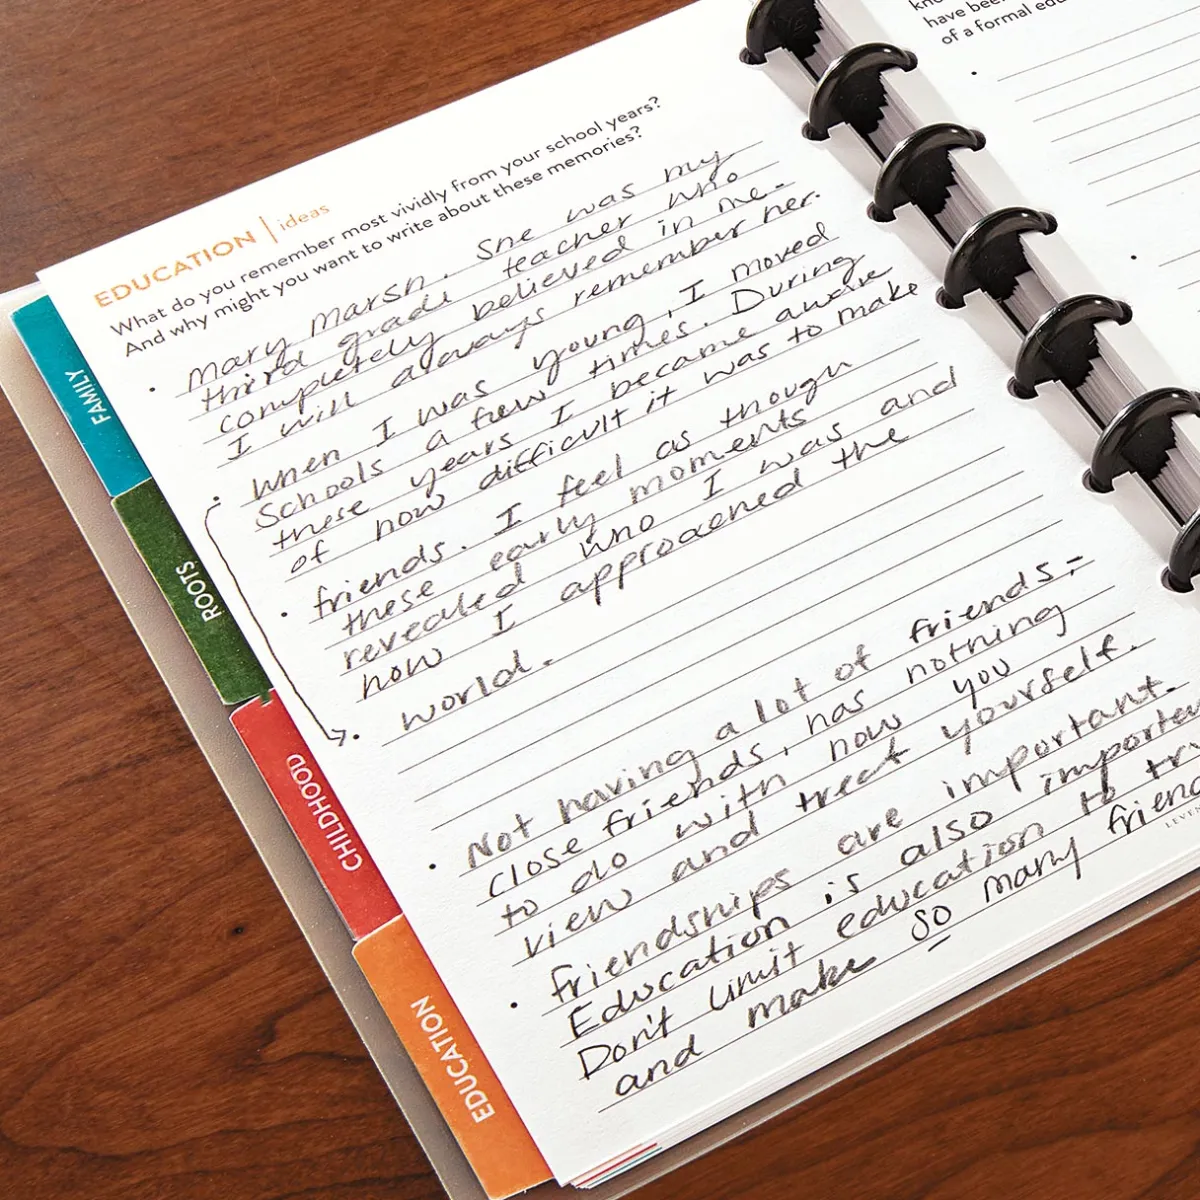 EDUCATION | ideas
What do you remember most vividly from your school years?
And why might you want to write about these memories?
• Mary Marsh. She was my
third grade teacher who
completely believed in me.
I will always remember her.
• When I was young, I moved
schools a few times. During
these years I became aware
of how difficult it was to make
• friends. I feel as though
these early moments
revealed who I was and
how I approached the
• world.
• Not having a lot of friends,
close friends, has nothing
to do with how you
view and treat yourself.
• Friendships are important.
Education is also
Don't limit education to
and make so many
FAMILY
ROOTS
CHILDHOOD
EDUCATION
have been
of a formal